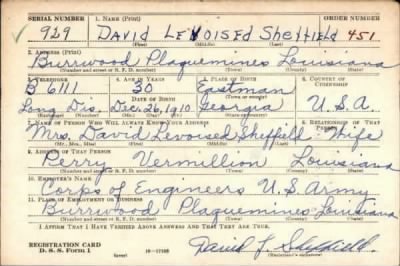 SERIAL NUMBER 1. NAME (Print) ORDER NUMBER
929 DAVID LEVOISED Sheffield 451
(First) (Middle) (Last)
2. ADDRESS (Print)
Burrwood Plaquemines Louisiana
(Number and street or R. F. D. number) (Town) (County) (State)
3. TELEPHONE 4. AGE IN YEARS 5. PLACE OF BIRTH 6. COUNTRY OF CITIZENSHIP
B 6111 30 Eastman
DATE OF BIRTH (Town or county)
Long Dis. Dec. 26, 1910 Georgia U.S.A.
(Exchange) (Number) (Mo.) (Day) (Yr.) (State or country)
7. NAME OF PERSON WHO WILL ALWAYS KNOW YOUR ADDRESS 8. RELATIONSHIP OF THAT PERSON
Mrs. David Levoised Sheffield Wife
(Mr., Mrs., Miss) (First) (Middle) (Last)
9. ADDRESS OF THAT PERSON
Perry Vermillion Louisiana
(Number and street or R. F. D. number) (Town) (County) (State)
10. EMPLOYER'S NAME
Corps of Engineers U.S. Army
11. PLACE OF EMPLOYMENT OR BUSINESS
Burrwood Plaquemines Louisiana
(Number and street or R. F. D. number) (Town) (County) (State)
I AFFIRM THAT I HAVE VERIFIED ABOVE ANSWERS AND THAT THEY ARE TRUE.
REGISTRATION CARD
D. S. S. Form 1 (over) David L Sheffield
(Registrant's signature)